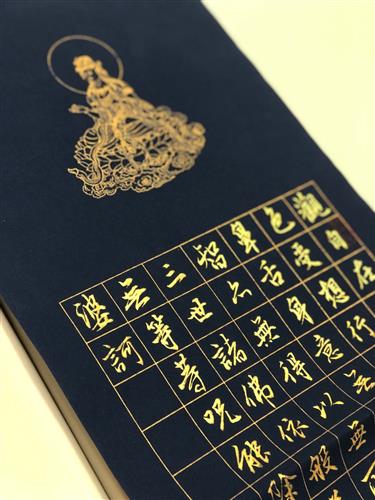 觀自在
色受想行
鼻舌身意無
智亦無得以無
三世諸佛依般
無等等呪能除
婆訶